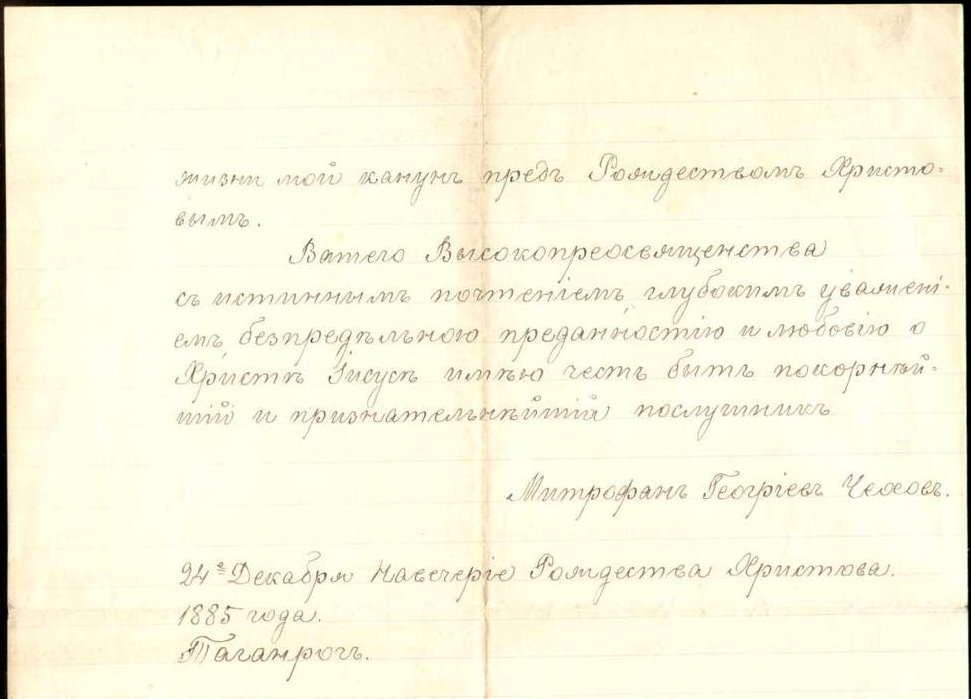 жизни мой канунъ предъ Рождествомъ Христо-
вымъ.
Вашего Высокопреосвященства
съ истиннымъ почтеніемъ глубокимъ уваженi-
емъ безпредѣльною преданностію и любовію о
Христѣ Іисусѣ имѣю честь быть покорнѣй-
шій и признательнѣйшій послушникъ
Митрофанъ Георгіевъ Чеховъ.
24е Декабря Навечеріе Рождества Христова.
1885 года.
Таганрогъ.